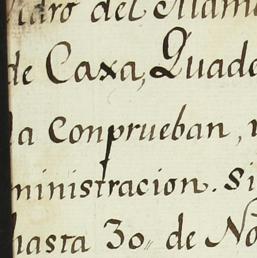 del
de Caxa, Quade
la conprueban,
ministracion. Si
hasta 30,, de No